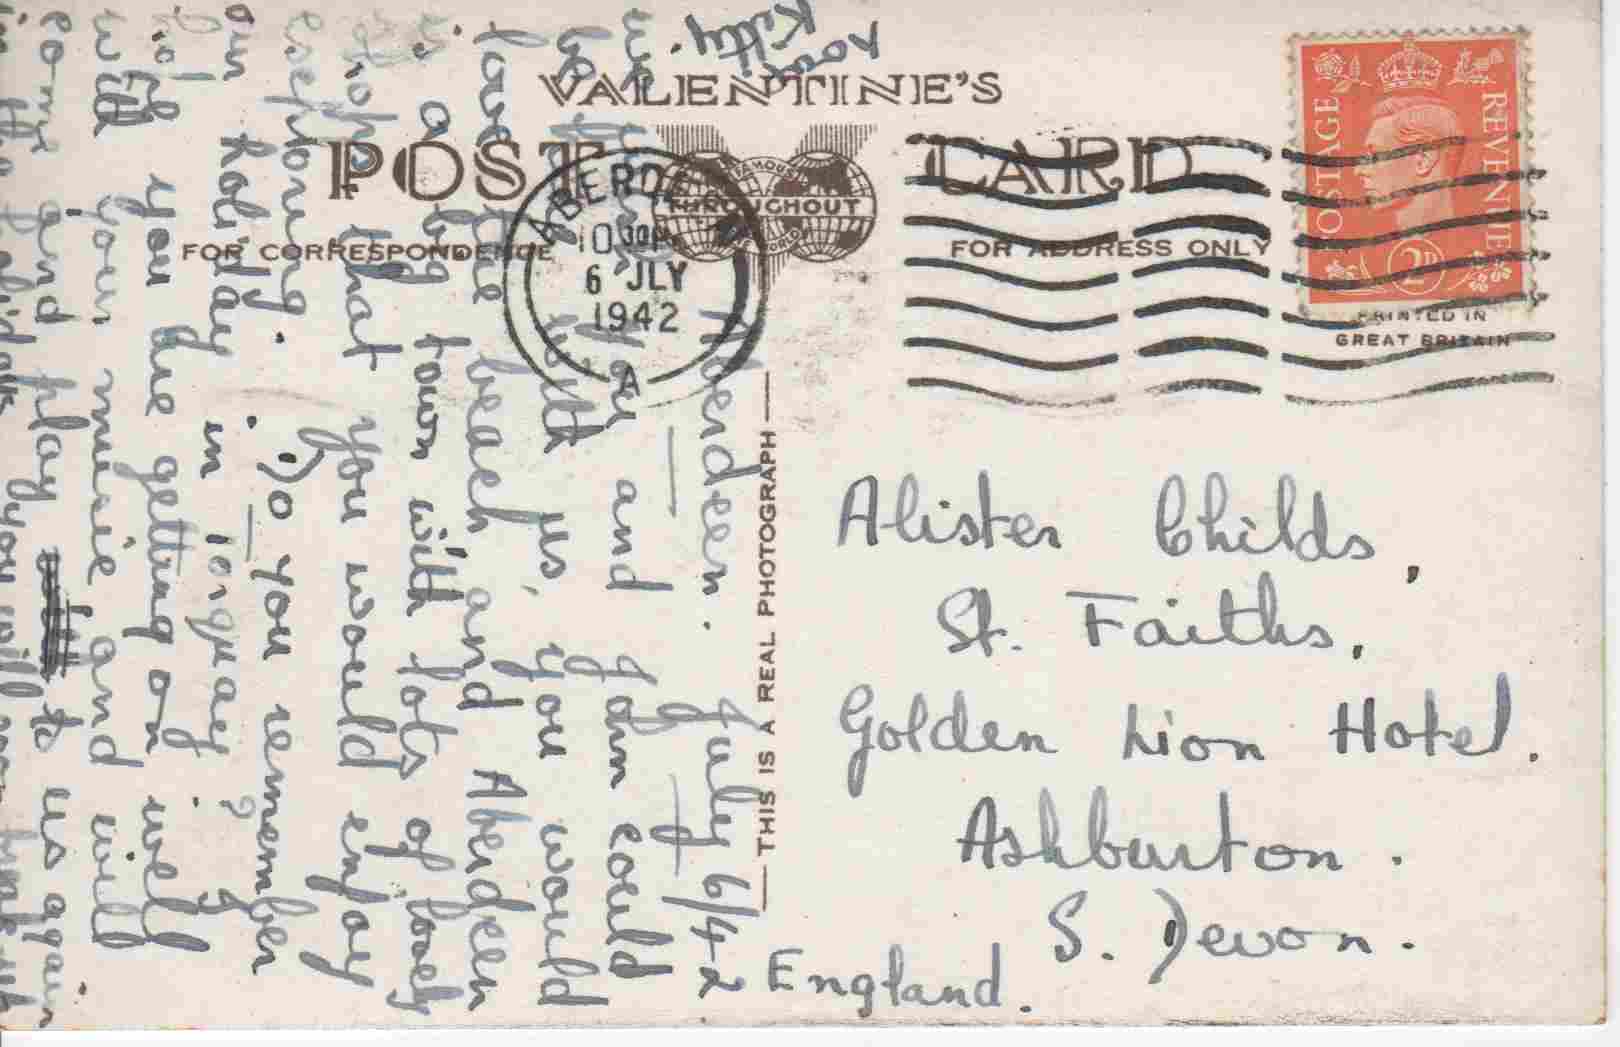 VALENTINE'S
POST CARD
FAMOUS
THROUGHOUT
THE WORLD
FOR CORRESPONDENCE
FOR ADDRESS ONLY
POSTAGE
REVENUE
2D
PRINTED IN
GREAT BRITAIN
6 JLY
1942
A
THIS IS A REAL PHOTOGRAPH
Aberdeen. July 6/42
you and Jan could
be with us, you would
love the beach and Aberdeen
is a big town with lots of lovely
shops that you would enjoy
exploring. Do you remember
our holiday in Torquay?
you are getting on well
with your music and will
come and play to us again
in the you will
Kitty.
Alister Childs,
St. Faiths,
Golden Lion Hotel.
Ashburton.
S. Devon.
England.